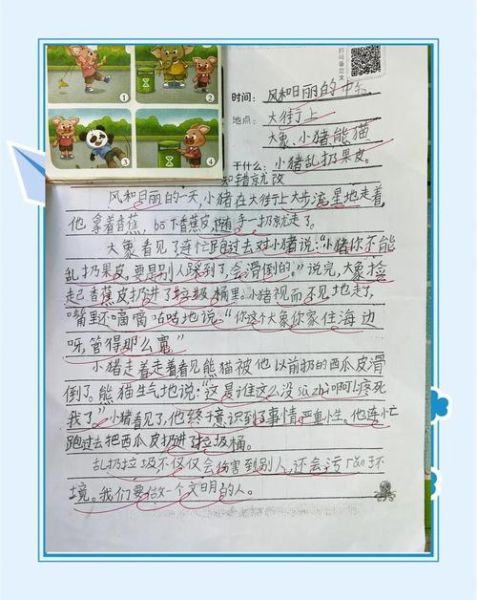 ①
②
③
④
时间: 风和日丽的中午
地点: 大街丁上
大象、小猪、熊猫
干什么: 小猪乱扔果皮。
知错就改
风和日丽的一天,小猪在大街丁上大步流星地走着,
他拿着香蕉,bō下香蕉皮,随手一扔就走了。
大象看见了连忙跑过去对小猪说:“小猪你不能
乱扔果皮。要是别人踩到了,会滑倒的。”说完,大象捡
起香蕉皮扔进了垃圾桶里。小猪视而不见地走了,
嘴里还嘀嘀咕咕地说:“你这个大象你家住海边
呀,管得那么宽”
小猪走着走着看见熊猫被他以前扔的西瓜皮滑
倒了。熊猫生气地说:“这是谁这么没sù zhì啊!疼死
我了”小猪看见了,他终于意识到了事情严重性。他连忙
跑过去把西瓜皮扔进了垃圾桶。
乱扔垃圾不仅仅会伤害到别人,还会污rǎn环
境。我们要做一个文明的人。